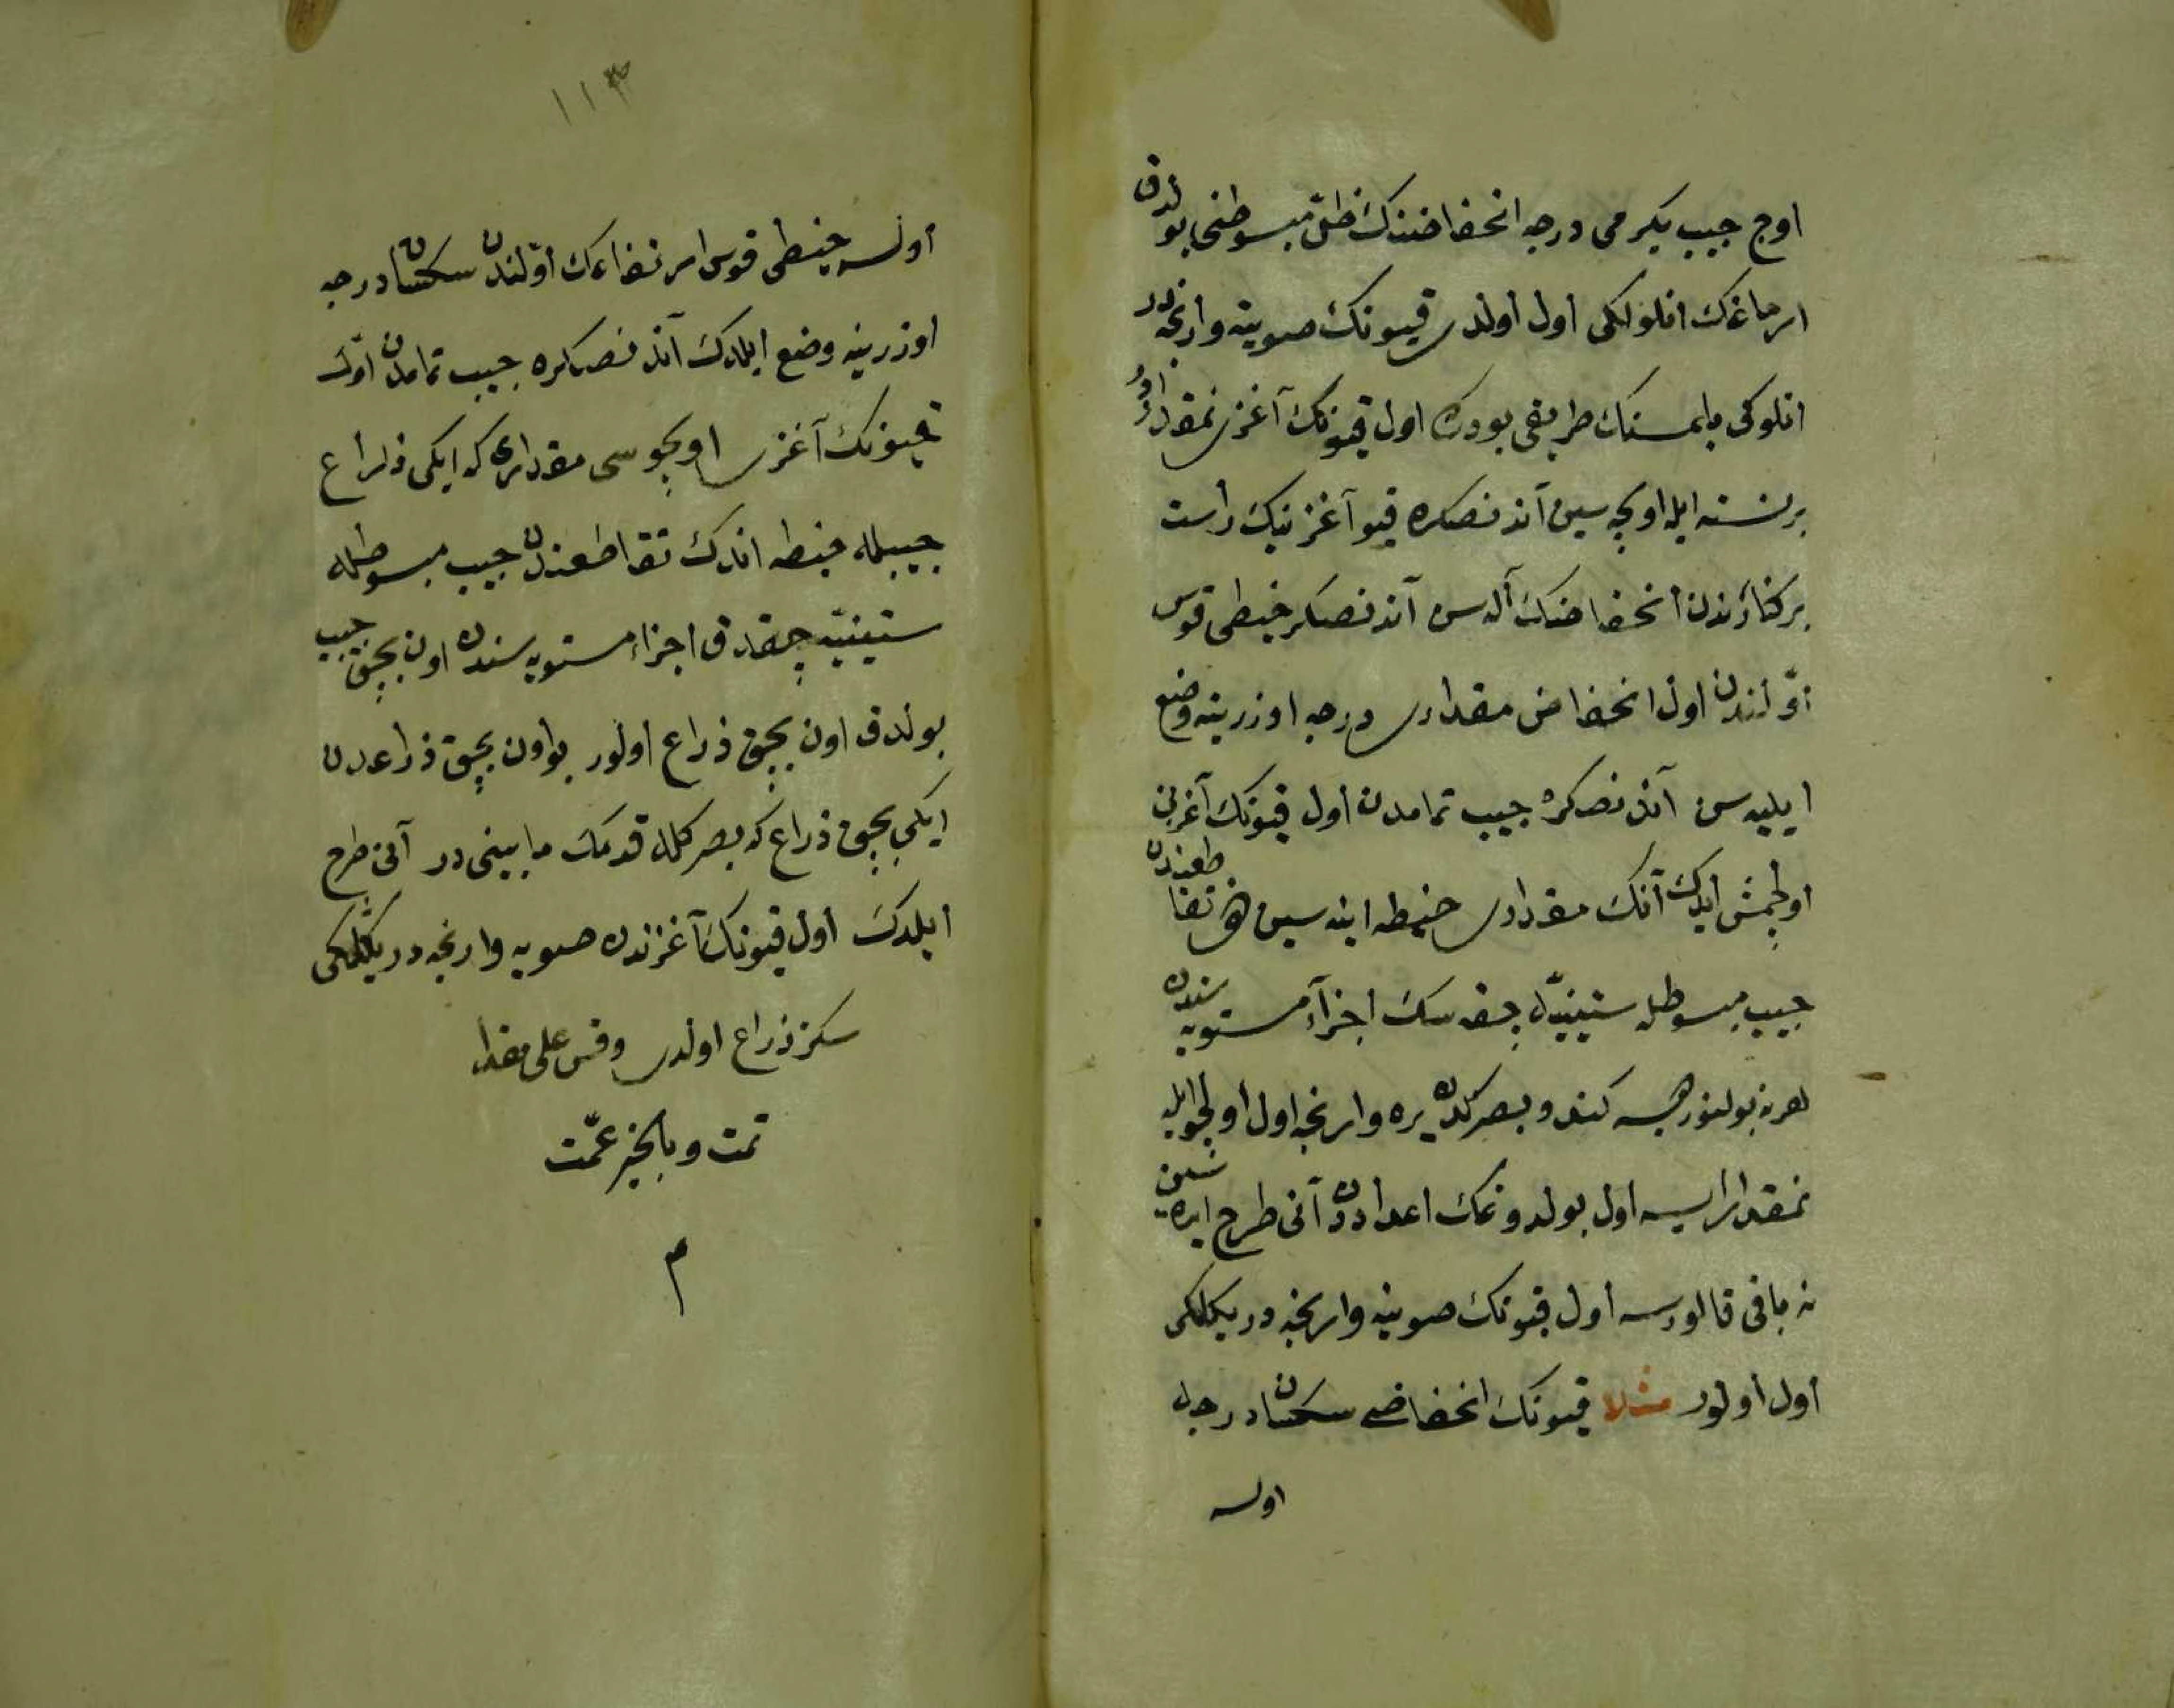 اوج جیب یکرمی درجه انخفاضنك ظل مبسوطنی بولدق
ارماغك انلولکی اول اولدی قیونك صوینه وارنجه در
انلوکی بلمسنك طریقی بودرکه اول قیونك آغزی نمقدار در
برنسنه ایله اولچه سین آندنصکره قیو آغزینك راست
برکنارندن انخفاضنك آله سن آندنصکره خیطی قوس
اولندن اول انخفاض مقداری درجه اوزرینه وضع
ایلیه سن آندنصکره جیب تمامدن اول قیونك آغزینی
اولچمش ایدك آنك مقداری خیطه اینه سین تقاطعندن
جیب مبسوطله ستینیه چقه سك اجزآء مستویه سندن
هر نه بولنورسه کندو بصرکدن یره وارنجه اول اولچو ایله
نمقدار ایسه اول بولدوغك اعداددن آنی طرح ایده سین
نه باقی قالورسه اول قیونك صوینه وارنجه در یکلکی
اول اولور مثلا قیونك انخفاضی سکسان درجه
اولسه
١١٣
اولسه خیطی قوس ارتفاعك اولندن سکسان درجه
اوزرینه وضع ایلدك آندنصکره جیب تمامدن اول
قیونك آغزی اولچوسی مقداری که ایکی ذراع
جیبله خیطه اندك تقاطعندن جیب مبسوطله
ستینیه چقدق اجزاء مستویه سندن اون بچق جیب
بولدق اون بچق ذراع اولور بو اون بچق ذراعدن
ایکی بچق ذراع که بصرکله قدمك مابینی در آنی طرح
ایلدك اول قیونك آغزندن صویه وارنجه در یکلکی
سکز ذراع اولدی وقس علی هذا
تمت وبالخیر عمت
م